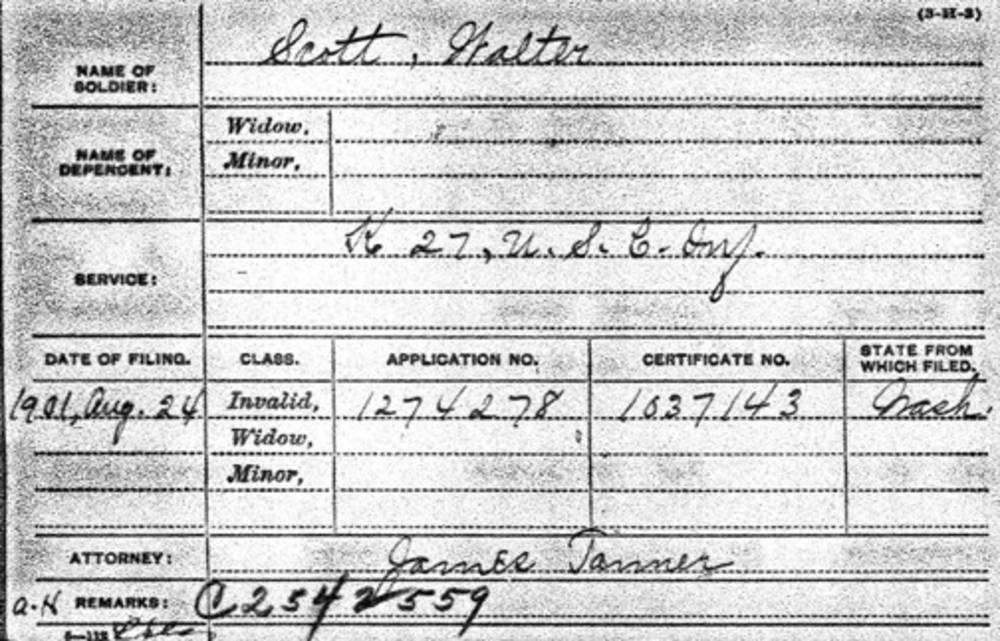 (3-H-3)
NAME OF SOLDIER: Scott, Walter
NAME OF DEPENDENT: Widow,
Minor,
SERVICE: K 27, U. S. C. Inf.
DATE OF FILING. CLASS. APPLICATION NO. CERTIFICATE NO. STATE FROM WHICH FILED.
1901, Aug. 24 Invalid, 1274278 1037143 Wash.
Widow,
Minor,
ATTORNEY: James Tanner
REMARKS: C 2542559